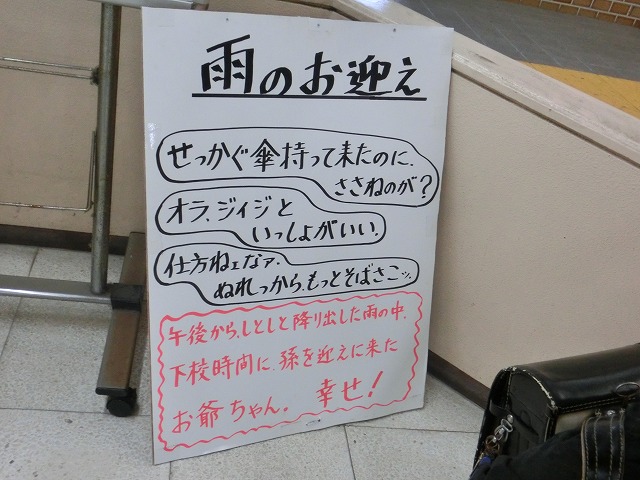 雨のお迎え
せっかぐ傘持って来たのに、
ささねのが?
オラ、ジィジと
いっしょがいい。
仕方ねェなァ。
ぬれっから、もっとそばさこッ。
午後から、しとしと降り出した雨の中、
下校時間に、孫を迎えに来た
お爺ちゃん。 幸せ!